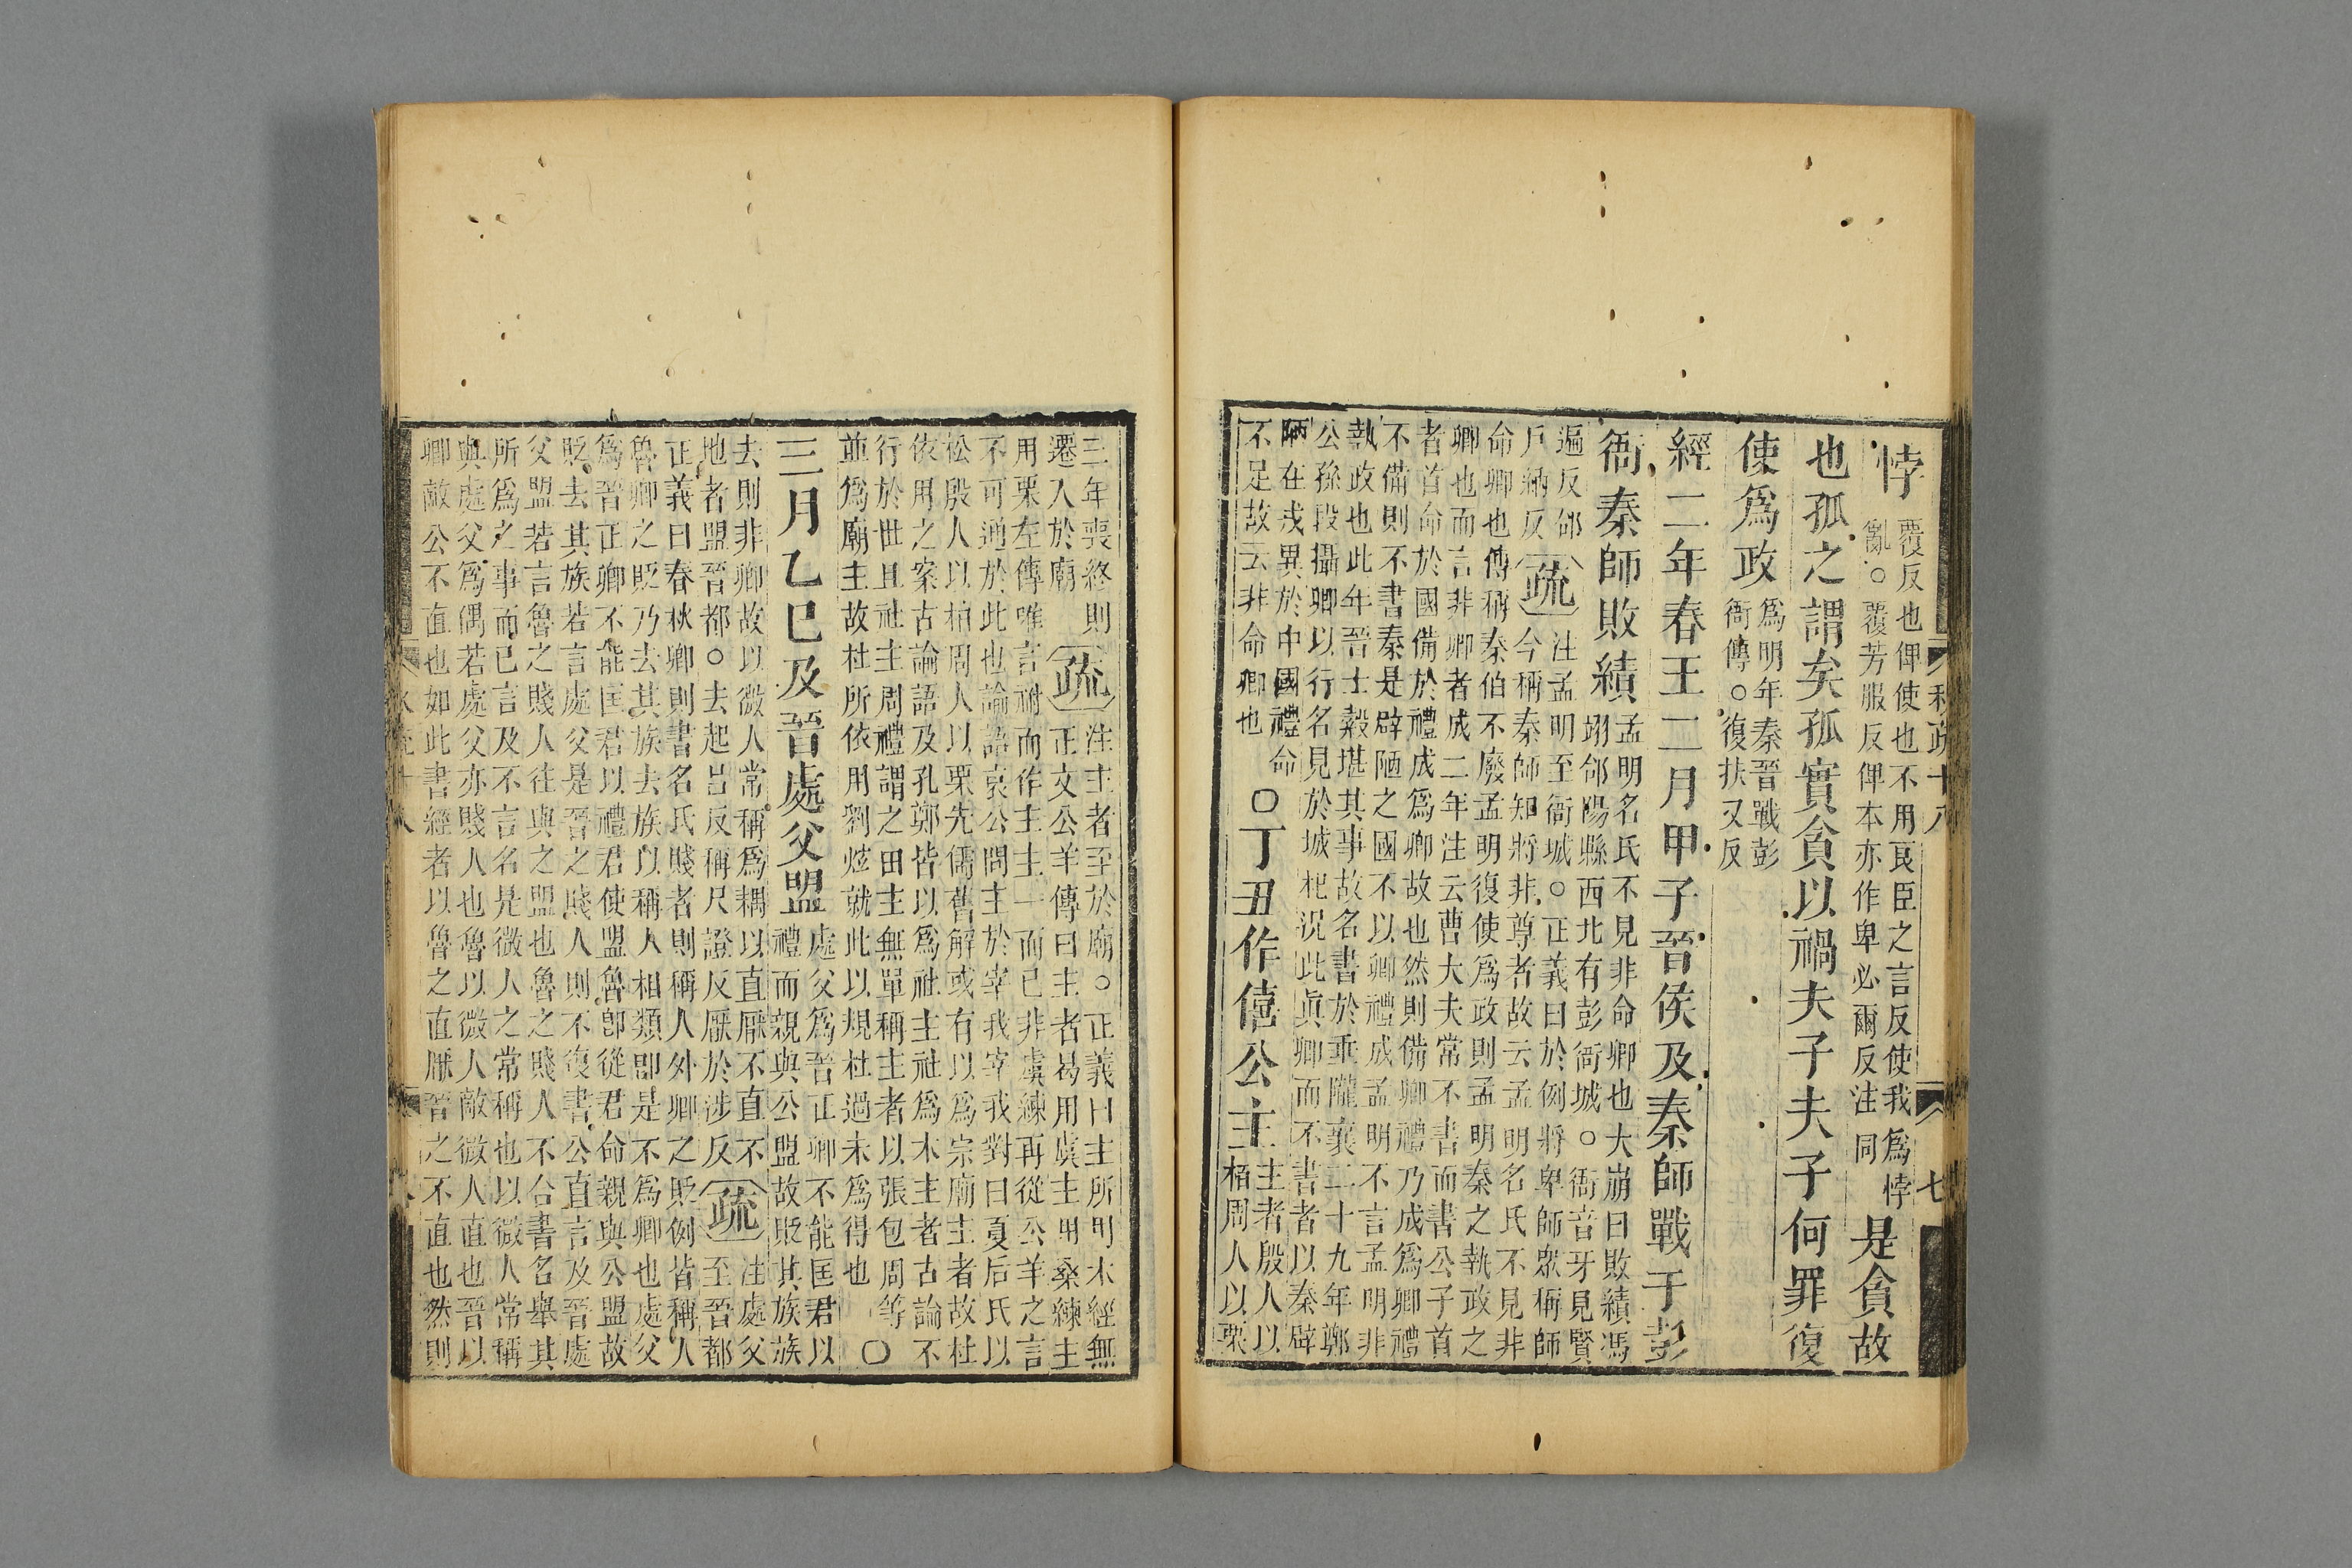 悖
覆反也俾使也不用良臣之言反使我爲悖
亂。覆芳服反俾本亦作卑必爾反注同
是貪故
也孤之謂矣孤實貪以禍夫子夫子何罪復
使爲政
爲明年秦晉戰彭
衙傳。復扶又反
經二年春王二月甲子晉侯及秦師戰于彭
衙秦師敗績
孟明名氏不見非命卿也大崩曰敗績馮
翊郃陽縣西北有彭衙城。衙音牙見賢
遍反郃
戶納反
疏
注孟明至衙城。正義曰於例將卑師眾稱師
今稱秦師知將非尊者故云孟明名氏不見非
命卿也傳稱秦伯不廢孟明復使爲政則孟明秦之執政之
卿也而言非卿者成二年注云曹大夫常不書而書公子首
者首命於國備於禮成爲卿故也然則備卿禮乃成爲卿禮
不備則不書秦是辟陋之國不以卿禮成孟明不言孟明非
執政也此年晉士縠堪其事故名書於垂隴襄二十九年鄭
公孫段攝卿以行名見於城杞況此眞卿而不書者以秦辟
陋在戎異於中國禮命
不足故云非命卿也
〇丁丑作僖公主
主者殷人以
栢周人以栗
三年喪終則
遷入於廟
疏
注主者至於廟。正義曰主所用木經無
正文公羊傳曰主者曷用虞主用桑練主
用栗左傳唯言祔而作主主一而已非虞練再從公羊之言
不可通於此也論語哀公問主於宰我宰我對曰夏后氏以
松殷人以柏周人以栗先儒舊解或有以爲宗廟主者故杜
依用之案古論語及孔鄭皆以爲社主社爲木主者古論不
行於世且社主周禮謂之田主無單稱主者以張包周等
並爲廟主故杜所依用劉炫就此以規杜過未爲得也
〇
三月乙巳及晉處父盟
處父爲晉正卿不能匡君以
禮而親與公盟故貶其族族
去則非卿故以微人常稱爲耦以直厭不直不
地者盟晉都。去起呂反稱尺證反厭於涉反
疏
注處父
至晉都
正義曰春秋卿則書名氏賤者則稱人外卿之貶例皆稱人
魯卿之貶乃去其族去族以稱人相類即是不爲卿也處父
爲晉正卿不能匡君以禮君使盟魯卽從君命親與公盟故
貶去其族若言處父是晉之賤人則不復書公直言及晉處
父盟若言魯之賤人往與之盟也魯之賤人不合書名舉其
所爲之事而已言及不言名是微人之常稱也以微人常稱
與處父爲偶若處父亦賤人也魯以微人敵微人直也晉以
卿敵公不直也如此書經者以魯之直厭晉之不直也然則